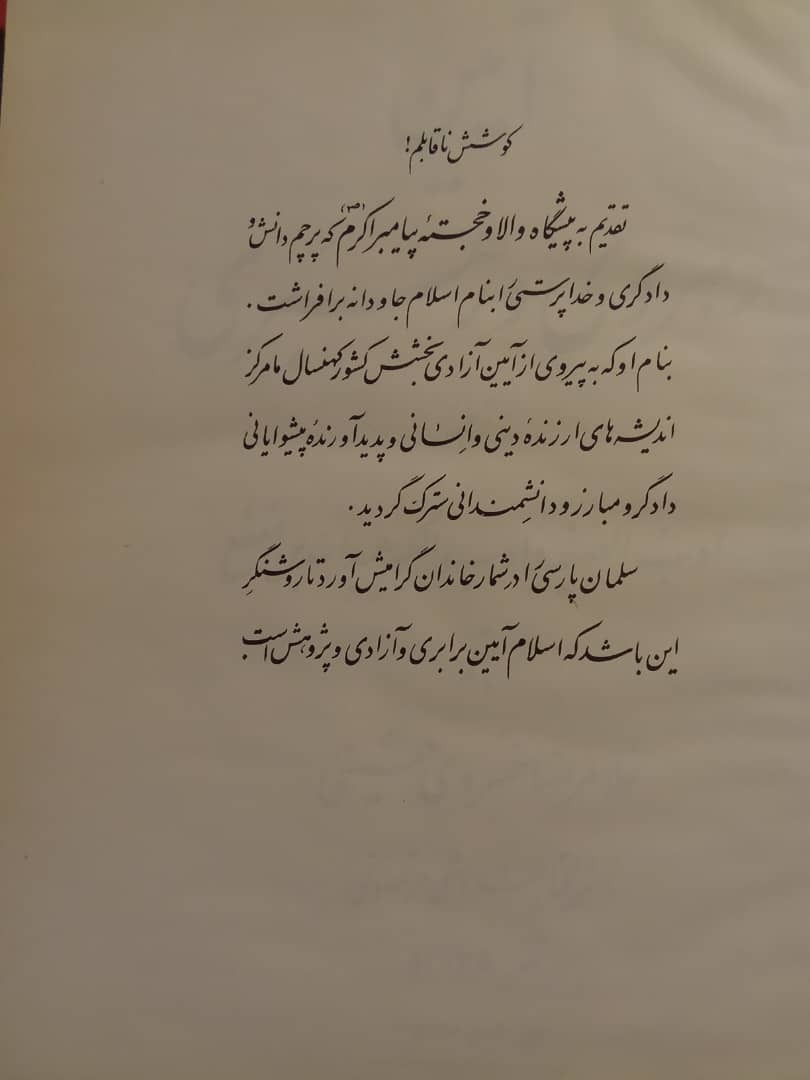 کوشش ناقابلم!
تقدیم به پیشگاه والا و خجستهٔ پیامبر اکرم (ص) که پرچم دانش و
دادگری و خداپرستی را بنام اسلام جاودانه برافراشت.
بنام او که به پیروی از آیین آزادی بخشش کشور کهنسال ما مرکز
اندیشه های ارزندهٔ دینی و انسانی و پدیدآورندهٔ پیشوایانی
دادگر و مبارز و دانشمندانی سترگ گردید.
سلمان پارسی را در شمار خاندان گرامیش آورد تا روشنگر
این باشد که اسلام آیین برابری و آزادی و پژوهش است